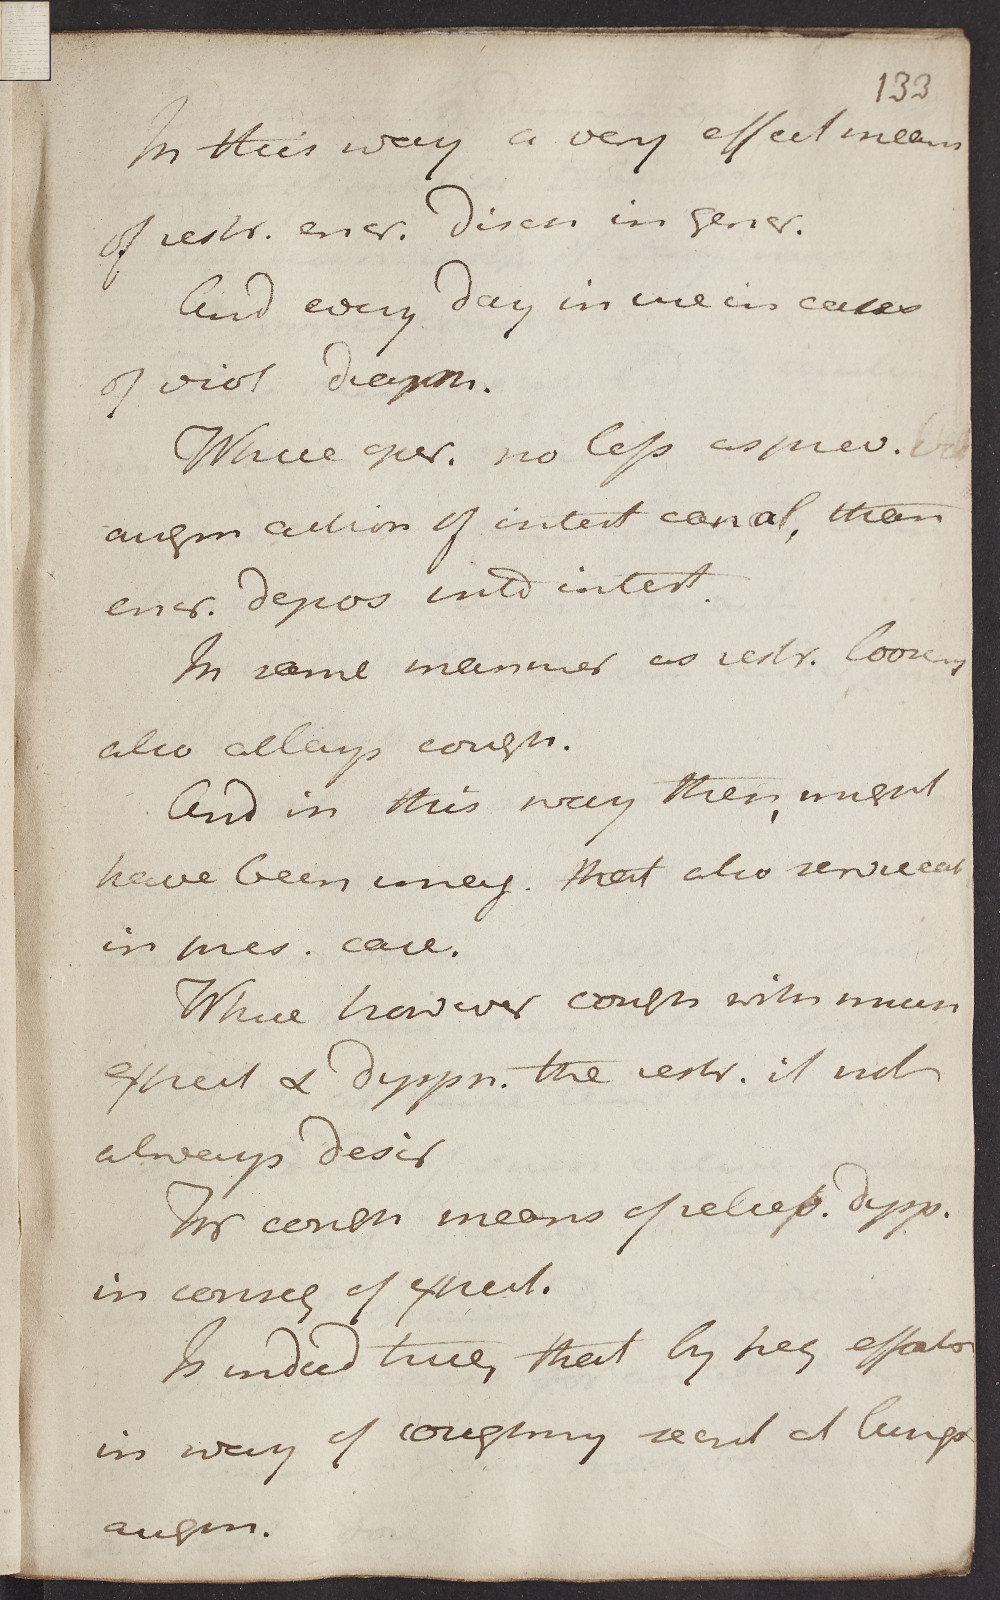 133
In this way a very effect means
of restr. encr. disch in gener.
And every day in use in cases
of viol diaprh.
Whue oper. no less as prev.
augm action of intest canal, than
encr. depos into intest.
In same manner as restr. loosen
also allays cough.
And in this way then, might
have been imag. that also serviceab
in pres. case.
Whue however cough with much
expect & dyspn. the restr. it not
always desir
For cough means of relief. dysp.
in conseq of expect.
Is indeed true, that by freq efforts
in way of coughing secret at lungs
augm.